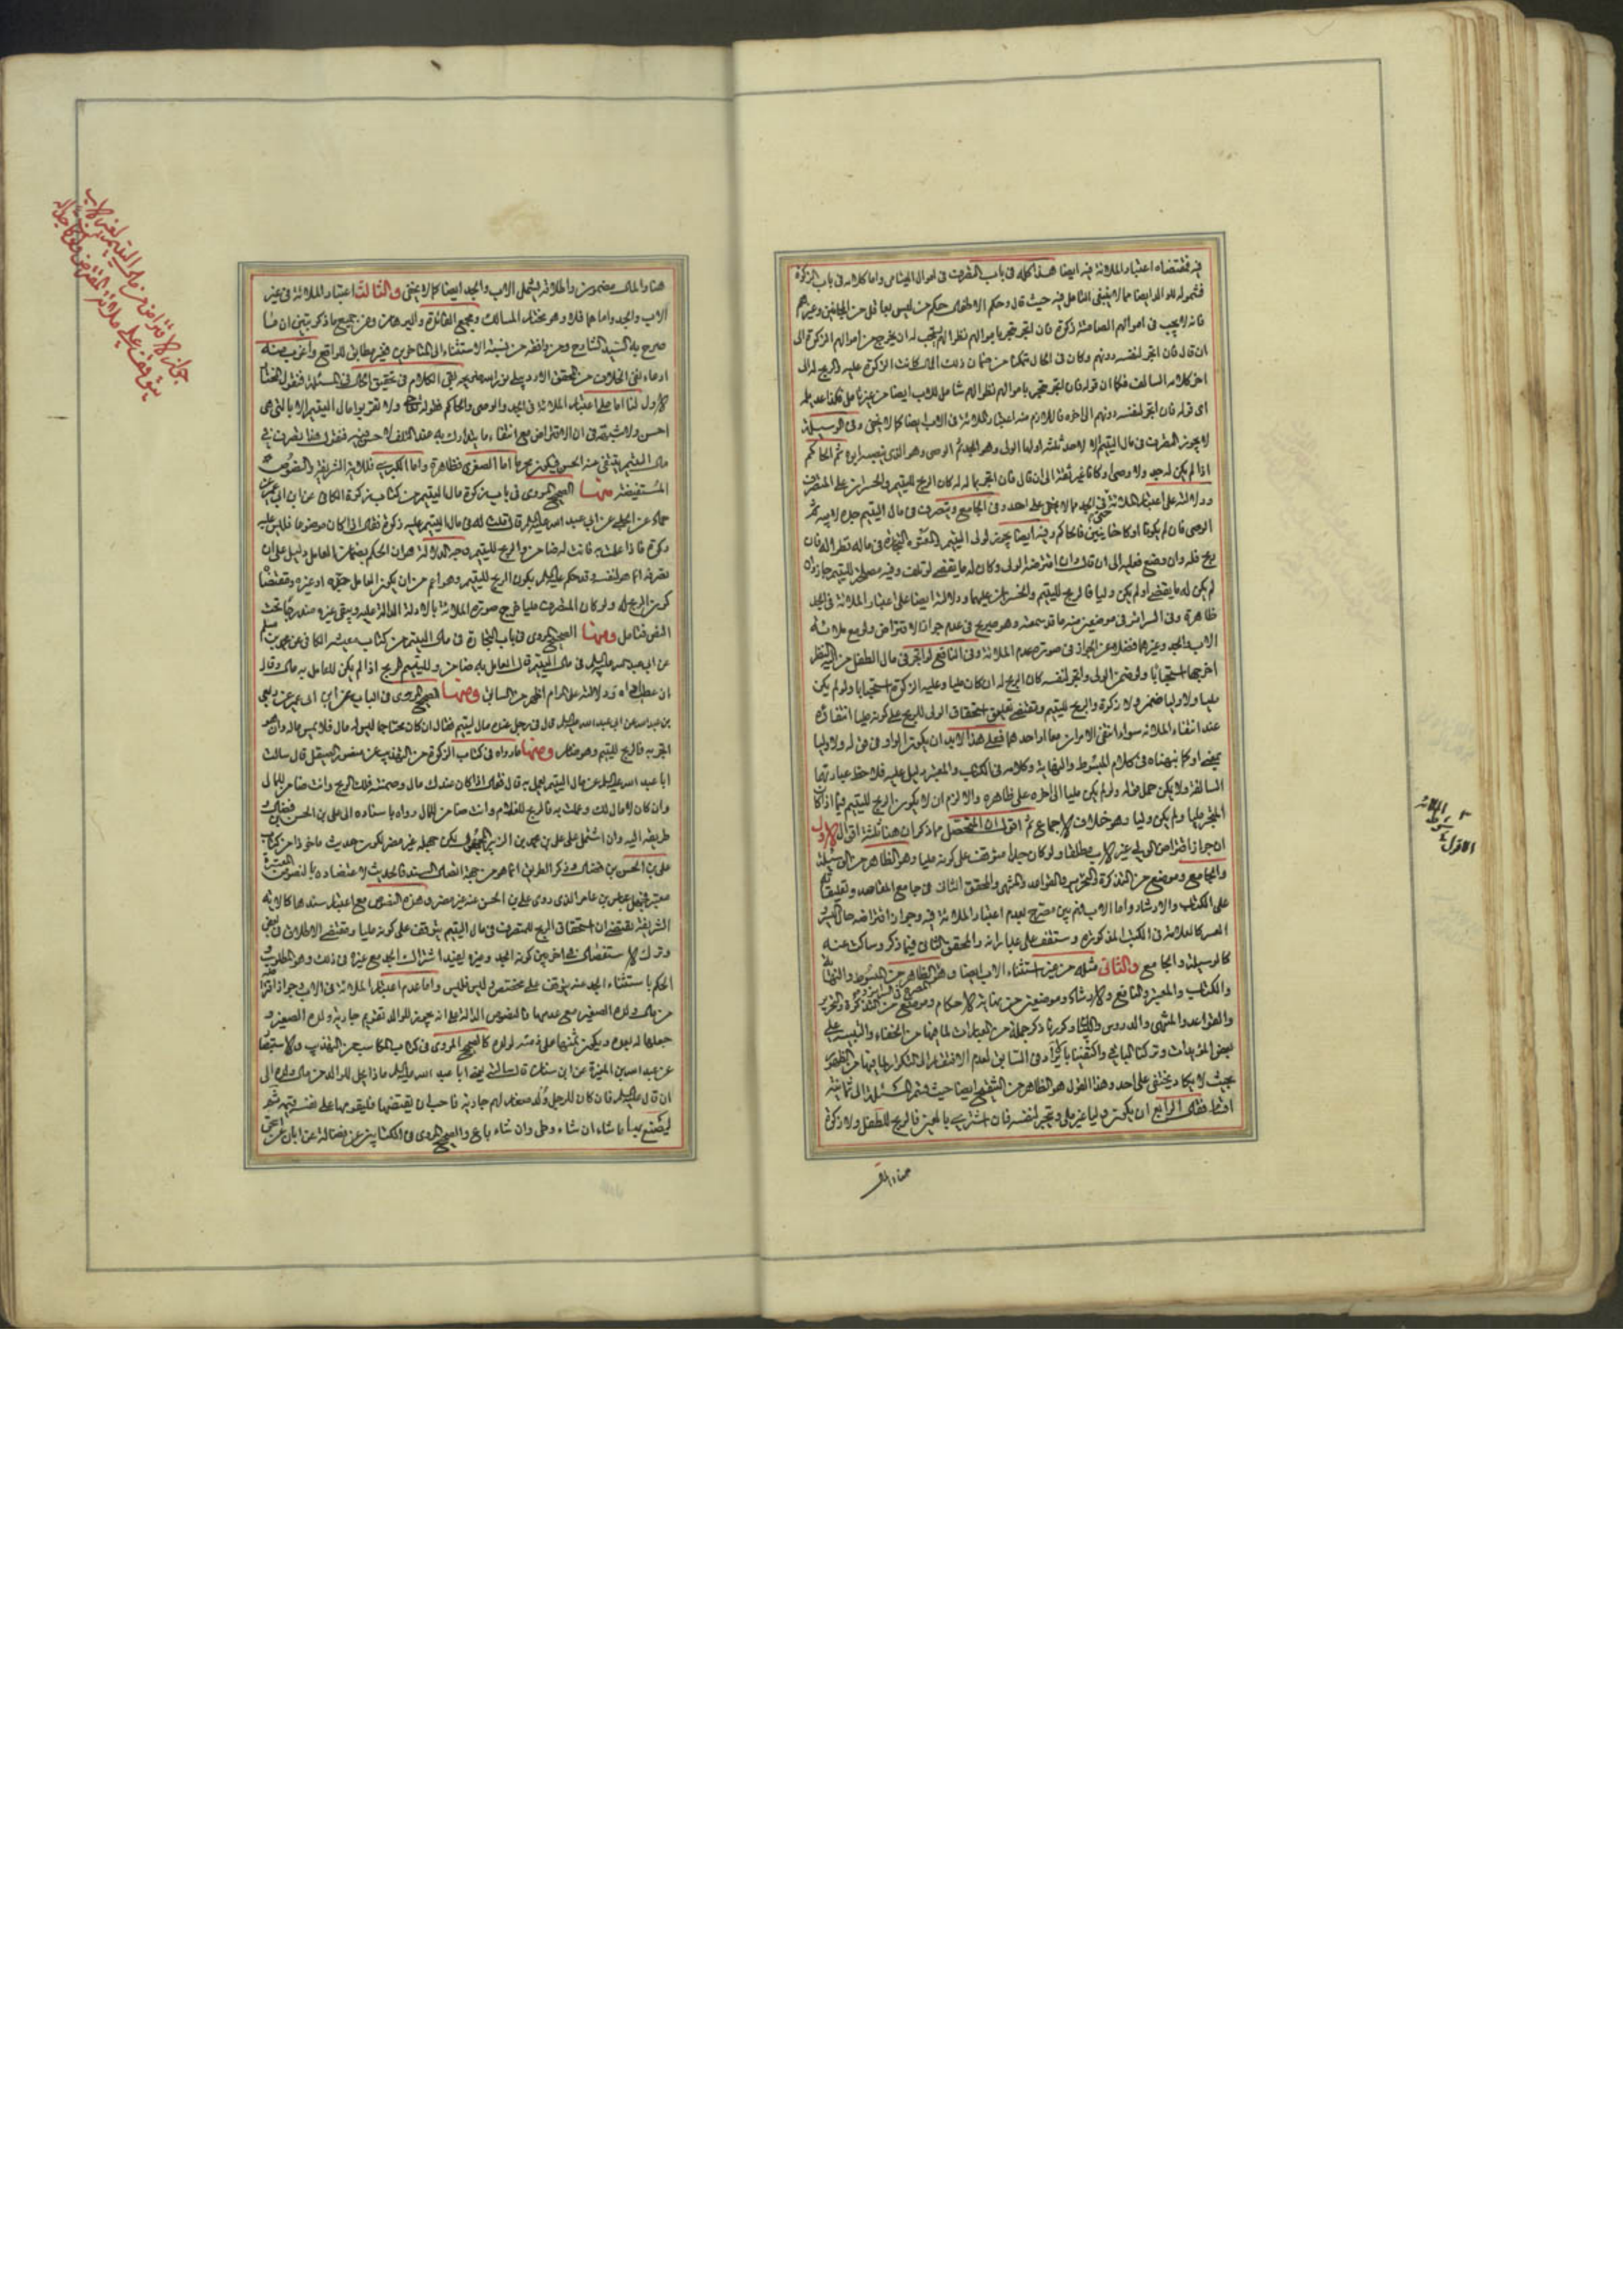 فيه فمقتضاه اعتبار الملائة فيه ايضا هذا كله في باب التصرف في اموال اليتامى واما كلامه في باب الزكوة
فشموله للوالد ايضا مما لا ينبغي التامل فيه حيث قال وحكم الاطفال حكم من ليس بعاقل من المجانين وغيرهم
فانه لا يجب في اموالهم الصامتة زكوة فان اتجر متجر باموالهم نظرا لهم يستحب له ان يخرج من اموالهم الزكوة الى
ان قال فان اتجر لنفسه دونهم وكان في الحال متمكنا من ضمان ذلك المال كانت الزكوة عليه والربح له الى
اخر كلامه السالف فكما ان قوله فان اتجر متجر باموالهم نظرا لهم شامل للاب ايضا من غير تامل فكذا عديله
اي قوله فان اتجر لنفسه دونهم الى اخره فاللازم منه اعتبار الملائة في الاب ايضا كما لا يخفى وفي الوسيلة
لا يجوز التصرف في مال اليتيم الا لاحد ثلثة اولها الولي وهو الجد ثم الوصي وهو الذي ينصبه ابوه ثم الحاكم
اذا لم يكن له جد ولا وصي او كانا غير ثقة الى ان قال فان اتجر بها له كان الربح لليتيم والخسران على المتصرف
ودلالته على اعتبار الملائة في الجد مما لا يخفى على احد وفي الجامع ويتصرف في مال اليتيم جده لابيه ثم
الوصي فان لم يكونا او كانا خائنين فالحاكم وفيه ايضا يجوز لولي اليتيم والمعتوه التجارة في ماله نظرا له فان
ربح فله وان وضع فعليه الى ان قال وان اقترضه الولي وكان له ما يقضيه لو تلف وفيه مصلحة لليتيم جاز وان
لم يكن له ما يقضيه او لم يكن وليا فالربح لليتيم والخسران عليهما ودلالته ايضا على اعتبار الملائة في الجد
ظاهرة وفي السرائر في موضعين منه ما قد سمعته وهو صريح في عدم جواز الاقتراض ولو مع ملائة
الاب والجد وغيرهما فضلا عن الجواز في صورة عدم الملائة وفي النافع لو اتجر في مال الطفل من اليه النظر
اخرجها استحبابا ولو ضمن الولي واتجر لنفسه كان الربح له ان كان مليا وعليه الزكوة استحبابا ولو لم يكن
مليا ولا وليا ضمن ولا زكوة والربح لليتيم ومقتضى تعليق استحقاق الولي للربح على كونه مليا انتفائه
عند انتفاء الملائة سواء انتفى الامران معا او احدهما فعلى هذا لابد ان يكون الواو في قوله ولا وليا
بمعنى او كما نبهناه في كلام المبسوط والنهاية وكلامه في الكتاب والمعتبر دليل عليه فلاحظ عبارتهما
السالفة ولا يمكن حمل قوله ولو لم يكن مليا الى اخره على ظاهره والا لزم ان لا يكون الربح لليتيم فيما اذا كان
المتجر مليا ولم يكن وليا وهو خلاف الاجماع ثم اقول ان المتحصل مما ذكر ان هنا ثلثة اقوال الاول
ان جواز اقتراض الولي غير الاب مطلقا ولو كان جدا متوقف على كونه مليا وهو الظاهر من الوسيلة
والجامع وموضع من التذكرة والتحرير والقواعد والمنتهى والمحقق الثاني في جامع المقاصد وتعليقاته
على الكتاب والارشاد واما الاب فهم بين مصرح بعدم اعتبار الملائة فيه وجواز اقتراضه حال اليسر و
العسر كالعلامة في الكتب المذكورة وستقف على عباراته والمحقق الثاني فيما ذكر وساكت عنه
كالوسيلة والجامع والثاني مثله من غير استثناء الاب ايضا وهو الظاهر من المبسوط والنهاية
والكتاب والمعتبر والنافع والارشاد وموضعين من نهاية الاحكام وموضع من التذكرة والتحرير
والقواعد والمنتهى والدروس واللمعة وكررنا ذكر جملة من العبارات لما فيها من الخفاء والتنبيه على
بعض المؤيدات وتركنا الباقي واكتفينا بايراده في السابق لعدم الافتقار الى التكرار لما فيها من الظهور
بحيث لا يكاد يختفي على احد وهذا القول هو الظاهر من التنقيح ايضا حيث قسم المسئلة الى ثمانية
اقسام فقال الرابع ان يكون وليا غير ملي ويتجر لنفسه فان اشترى بالعين فالربح للطفل ولا زكوة
هنا والمال
الملائة
الاقوال
هنا والمال مضمون واطلاقه يشمل الاب والجد ايضا كما لا يخفى والثالث اعتبار الملائة في غير
الاب والجد واما هما فلا وهو مختار المسالك ومجمع الفائدة والبرهان ومن جميع ما ذكر تبين ان ما
صرح به السيد الشارح ومن وافقه من نسبة الاستثناء الى المتاخرين غير مطابق للواقع واغرب منه
ادعاء نفي الخلاف من المحقق الاردبيلي نور الله ضريحه بقي الكلام في تحقيق الحال في المسئلة فنقول المختار
الاول لنا اما على اعتبار الملائة في الجد والوصي والحاكم فقوله تعالى ولا تقربوا مال اليتيم الا بالتي هي
احسن ولا شبهة في ان الاقتراض مع انتفاء ما يتدارك به عند التلف لا حسن فيه فنقول هذا تصرف في
مال اليتيم ينتفي عنه الحسن فيكون محرما اما الصغرى فظاهرة واما الكبرى فللاية الشريفة والنصوص
المستفيضة منها الصحيح المروي في باب زكوة مال اليتيم من كتاب زكوة الكافي عن ابن ابي عمير عن
حماد عن الحلبي عن ابي عبد الله عليه السلام قال قلت له في مال اليتيم عليه زكوة فقال اذا كان موضوعا فليس عليه
زكوة فاذا عملت به فانت له ضامن والربح لليتيم وجه الدلالة هو ان الحكم بضمان العامل دليل على ان
تصرفه انما هو لنفسه وقد حكم عليه السلام بكون الربح لليتيم وهو اعم من ان يكون العامل جده او غيره ومقتضاه
كون الربح له ولو كان المتصرف مليا خرج صورة الملائة بالادلة الدالة عليه وبقي غيره مندرجا تحت
النص فتامل ومنها الصحيح المروي في باب التجارة في مال اليتيم من كتاب معيشة الكافي عن محمد بن مسلم
عن ابي عبد الله عليه السلام في مال اليتيم قال العامل به ضامن ولليتيم الربح اذا لم يكن للعامل به مال وقال
ان عطب اداه ودلالته على المرام اظهر من السابق ومنها الصحيح المروي في الباب عن ابن ابي عمير عن ربعي
بن عبد الله عن ابي عبد الله عليه السلام قال في رجل عنده مال ليتيم فقال ان كان محتاجا ليس له مال فلا يمس ماله وان هو
اتجر به فالربح لليتيم وهو ضامن ومنها ما رواه في كتاب الزكوة من التهذيب عن منصور الصيقل قال سالت
ابا عبد الله عليه السلام عن مال اليتيم يعمل به قال فقال اذا كان عندك مال وضمنته فلك الربح وانت ضامن للمال
وان كان لا مال لك وعملت به فالربح للغلام وانت ضامن للمال رواه باسناده الى علي بن الحسن بن فضال و
طريقه اليه وان اشتمل على علي بن محمد بن الزبير المجهول لكن جهله غير مضر لكون الحديث ماخوذا من كتاب
علي بن الحسن بن فضال وذكر الطريق انما هو من جهة اتصال السند فالحديث لاعتضاده بالنصوص المعتبرة
معتبر فجهل عباس بن عامر الذي روى علي بن الحسن عنه غير مضر وهذه النصوص مع اعتبار سندها كالاية
الشريفة يقتضي ان استحقاق الربح للمتصرف في مال اليتيم يتوقف على كونه مليا ومقتضى الاطلاق في بعض
وترك الاستفصال في اخر بين كونه الجد وغيره يفيد اشتراك الجد مع غيره في ذلك وهو المطلوب و
الحكم باستثناء الجد عنه يتوقف على مخصص وليس فليس واما عدم اعتبار الملائة في الاب وجواز اقتراضه
من مال ولده الصغير مع عدمها فالنصوص الدالة على انه يجوز للوالد تقويم جارية ولده الصغير و
جعلها له بعده ويكون ثمنها على ذمته لولده كالصحيح المروي في كتاب المكاسب من التهذيب والاستبصار
عن عبد الله بن المغيرة عن ابن سنان قال سالته يعني ابا عبد الله عليه السلام ماذا يحل للوالد من مال ولده الى
ان قال عليه السلام فان كان للرجل ولد صغار لهم جارية فاحب ان يقتضيها فليقومها على نفسه قيمة ثم
ليصنع بها ما شاء ان شاء وطى وان شاء باع والصحيح المروي في الكتابين عن فضالة عن ابان عن اسحق
جواز الاقتراض من مال اليتيم لغير الاب
يتوقف على ملائة المقترض ولو كان جدا له